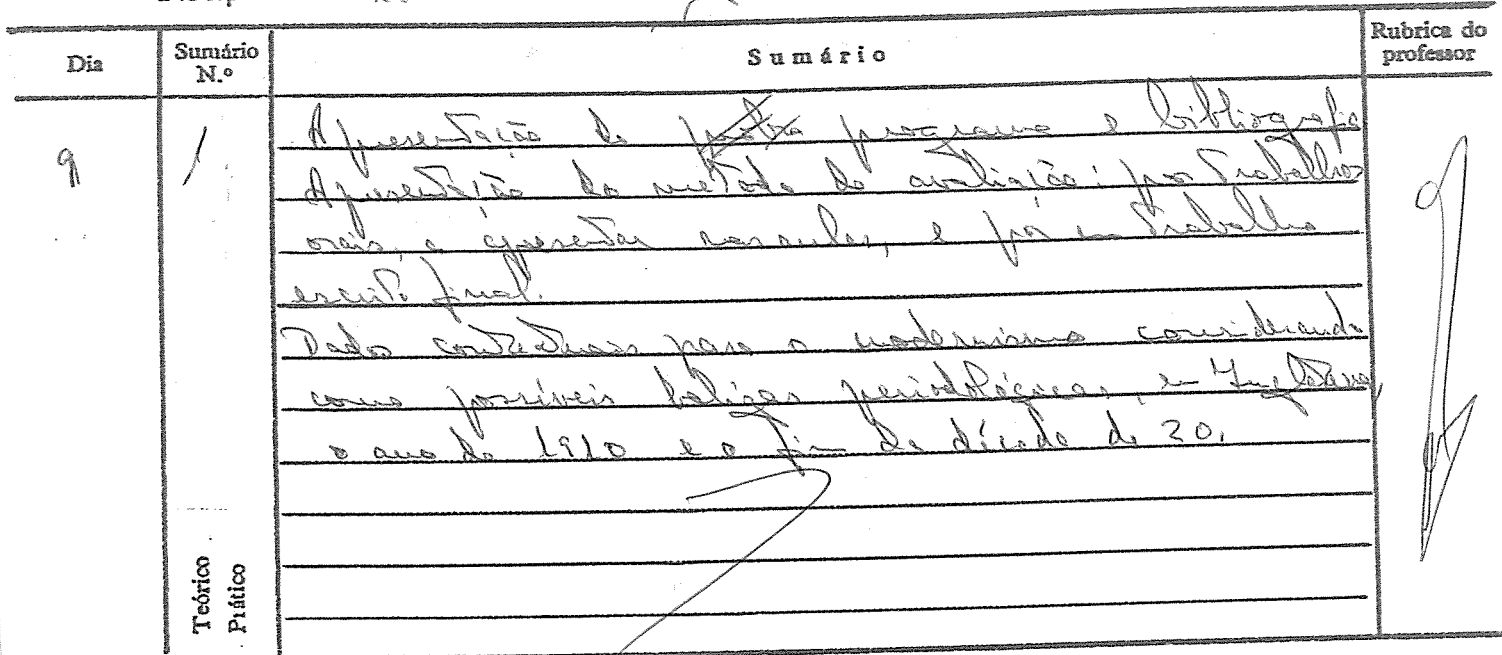 Dia
Sumário N.º
Sumário
Rubrica do professor
9
1
Apresentação do programa e bibliografia
Apresentação do método de avaliação: por trabalhos
orais, a apresentar nas aulas, e por um trabalho
escrito final.
Dados contextuais para o modernismo considerando
como possíveis balizas periodológicas, em Inglaterra,
o ano de 1910 e o fim da década de 20.
Teórico
Prático